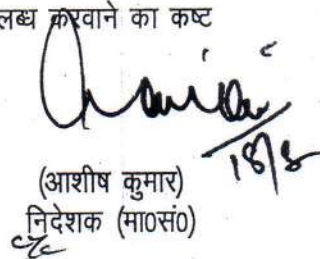 लब्ध करवाने का कष्ट
18/8
(आशीष कुमार)
निदेशक (मा0सं0)